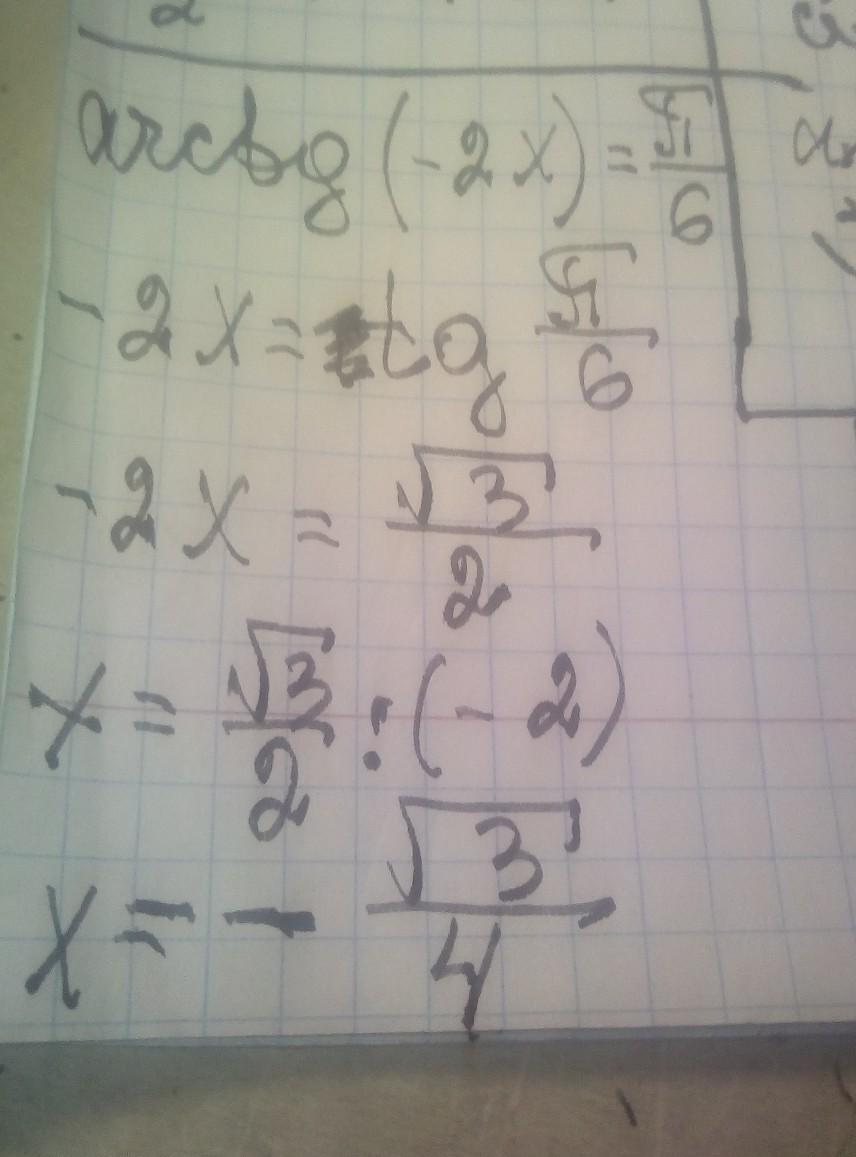 2
arctg(-2x) = π/6
-2x = tg π/6
-2x = √3/2
x = √3/2 : (-2)
x = - √3/4